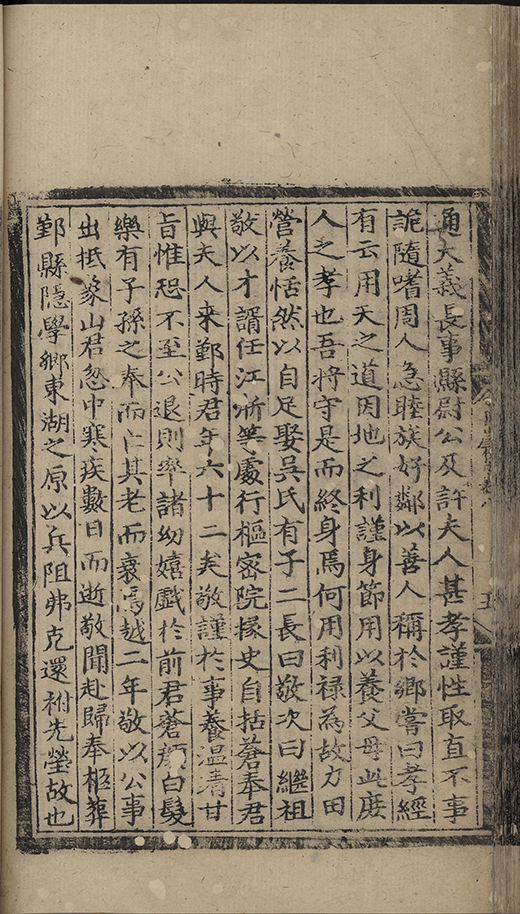 通大義長事縣尉公及許夫人甚孝謹性取直不事
詭隨嗜周人急睦族好鄰以善人稱於鄉嘗曰孝經
有云用天之道因地之利謹身節用以養父母此庶
人之孝也吾將守是而終身焉何用利祿為故力田
營養恬然以自足娶吳氏有子二長曰敬次曰繼祖
敬以才諝任江浙等處行樞密院掾史自括蒼奉君
與夫人来鄞時君年六十二矣敬謹於事養温凊甘
旨惟恐不至公退則率諸幼嬉戲於前君蒼顔白髮
樂有子孫之奉而亡其老而衰焉越二年敬以公事
出抵象山君忽中寒疾數日而逝敬聞赴歸奉柩葬
鄞縣隱學鄉東湖之原以兵阻弗克還祔先塋故也